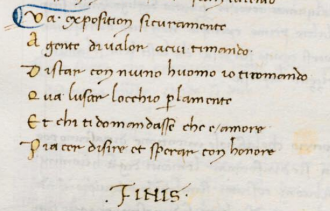 Va exposition sicuramente
A gente di valor acui ti mando
Di star con niuno huomo io ti romando
Qua lusar locchio p lamente
Et chi ti domandasse che e amore
Piacer disire et sperar con honore
. FINIS .